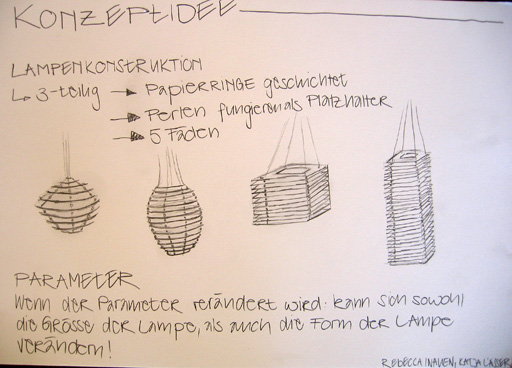 KONZEPTIDEE
LAMPENKONSTRUKTION
↳ 3-teilig → PAPIERRINGE geschichtet
→ Perlen fungieren als Platzhalter
→ 5 Fäden
PARAMETER
Wenn der Parameter verändert wird kann sich sowohl
die Grösse der Lampe, als auch die Form der Lampe
verändern!
REBECCA INAUEN, KATJA